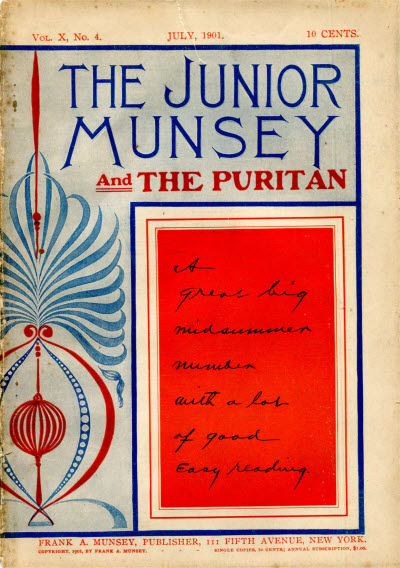 VOL. X, NO. 4. JULY, 1901. 10 CENTS.
THE JUNIOR
MUNSEY
And THE PURITAN
A
great big
midsummer
number
with a lot
of good
Easy reading.
FRANK A. MUNSEY, PUBLISHER, 111 FIFTH AVENUE, NEW YORK.
COPYRIGHT, 1901, BY FRANK A. MUNSEY. SINGLE COPIES, 10 CENTS; ANNUAL SUBSCRIPTION, $1.00.